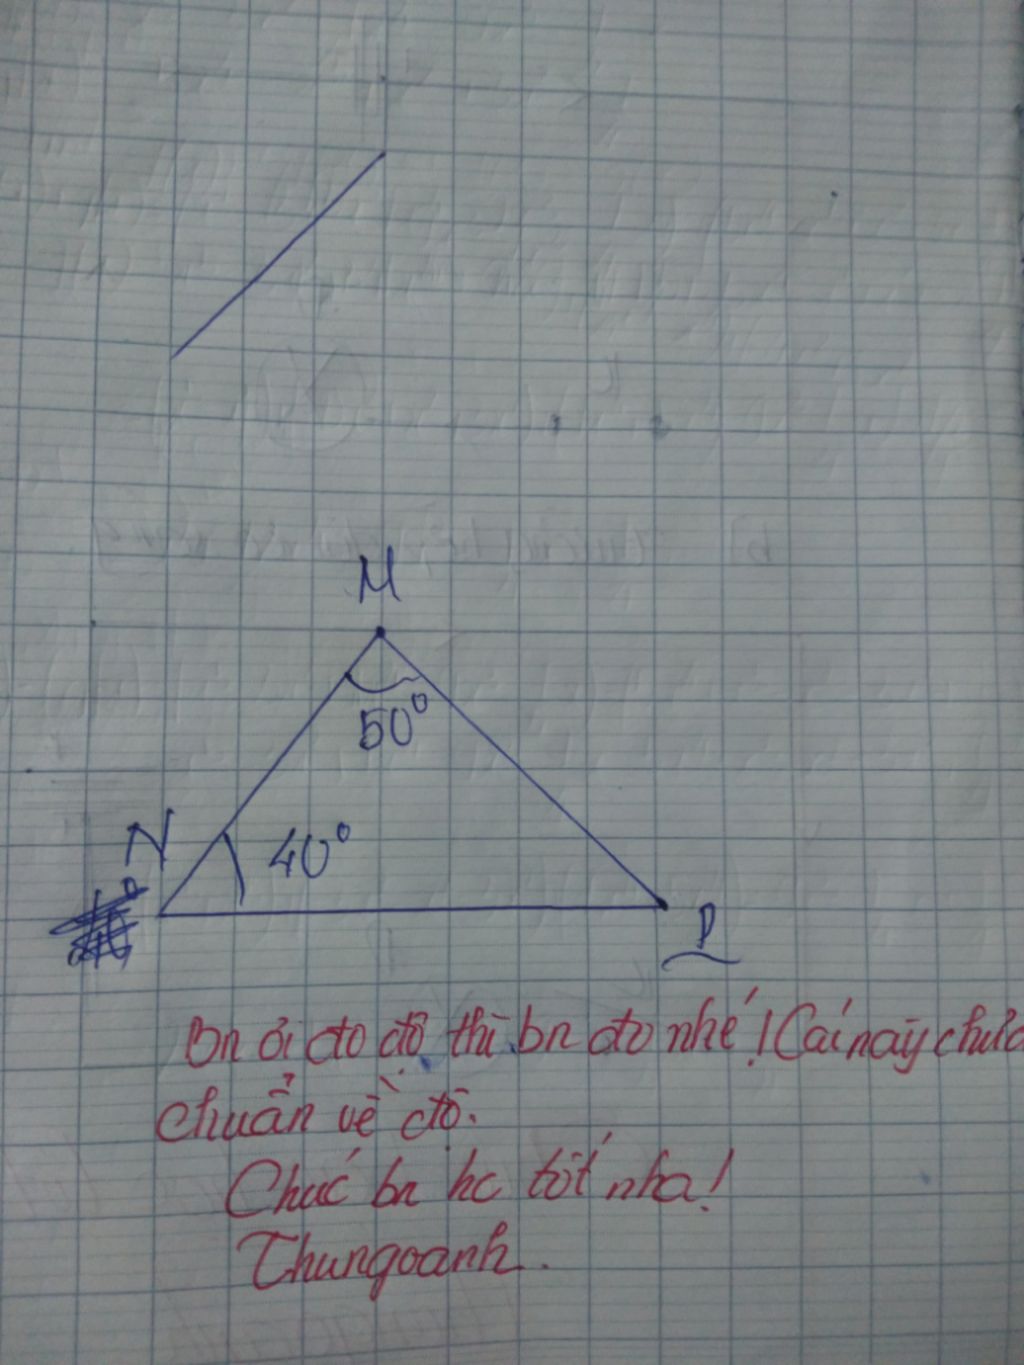 M
50°
N
40°
P
Bn ơi đo độ thì bn đo nhé! Cái này chưa
chuẩn về độ.
Chúc bn hc tốt nha!
Thungoanh.